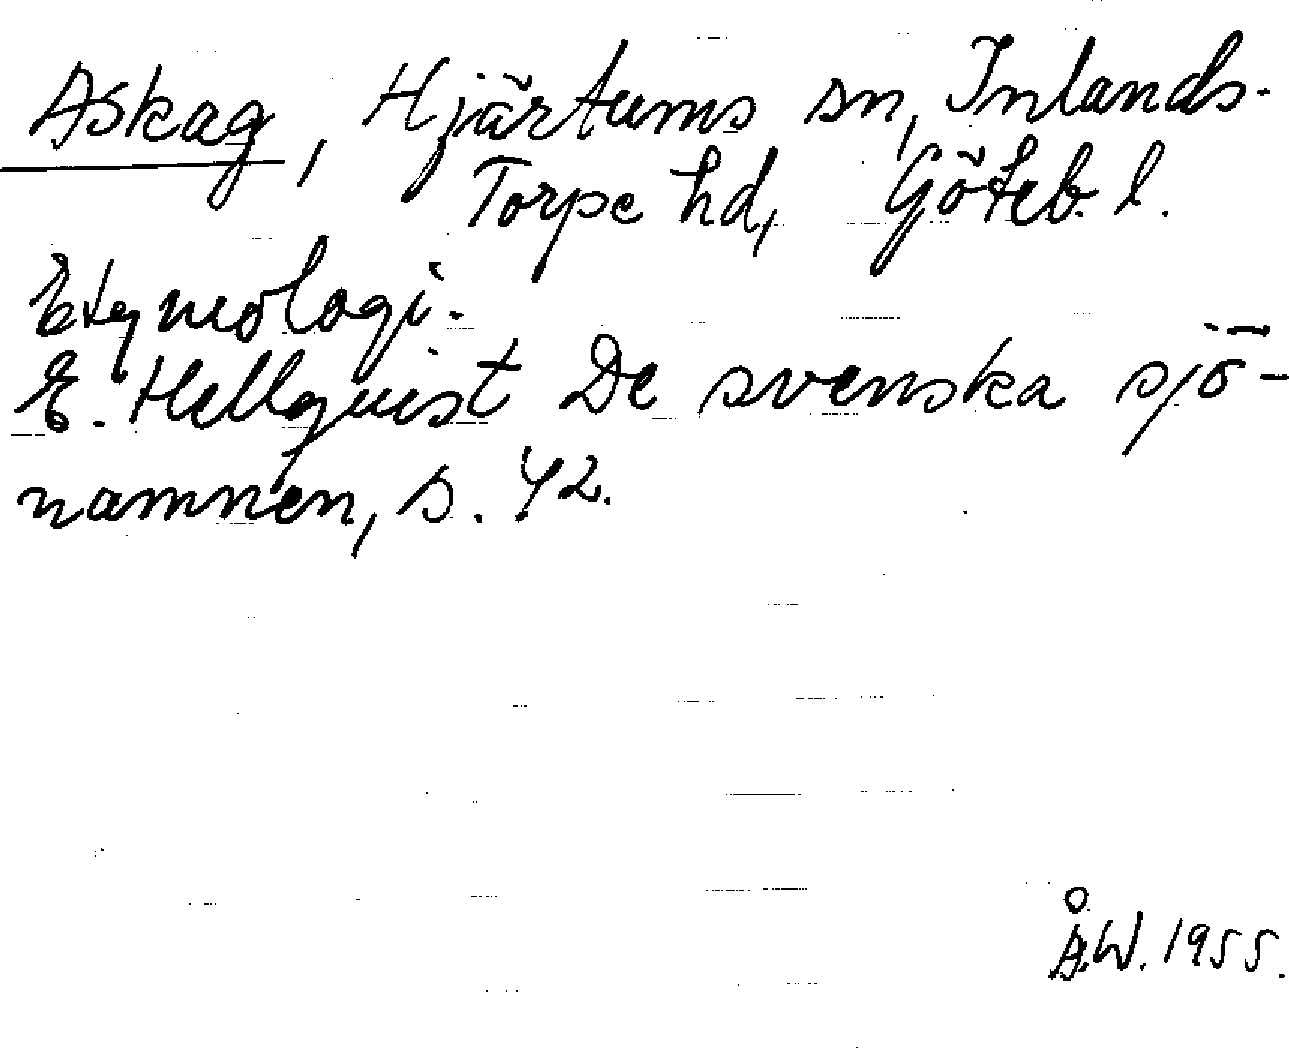 Askag, Hjärtums sn, Inlands-
Torpe hd, Göteb. l.
Etymologi.
E. Hellquist De svenska sjö-
namnen, s. 42.
Å.W. 1955.